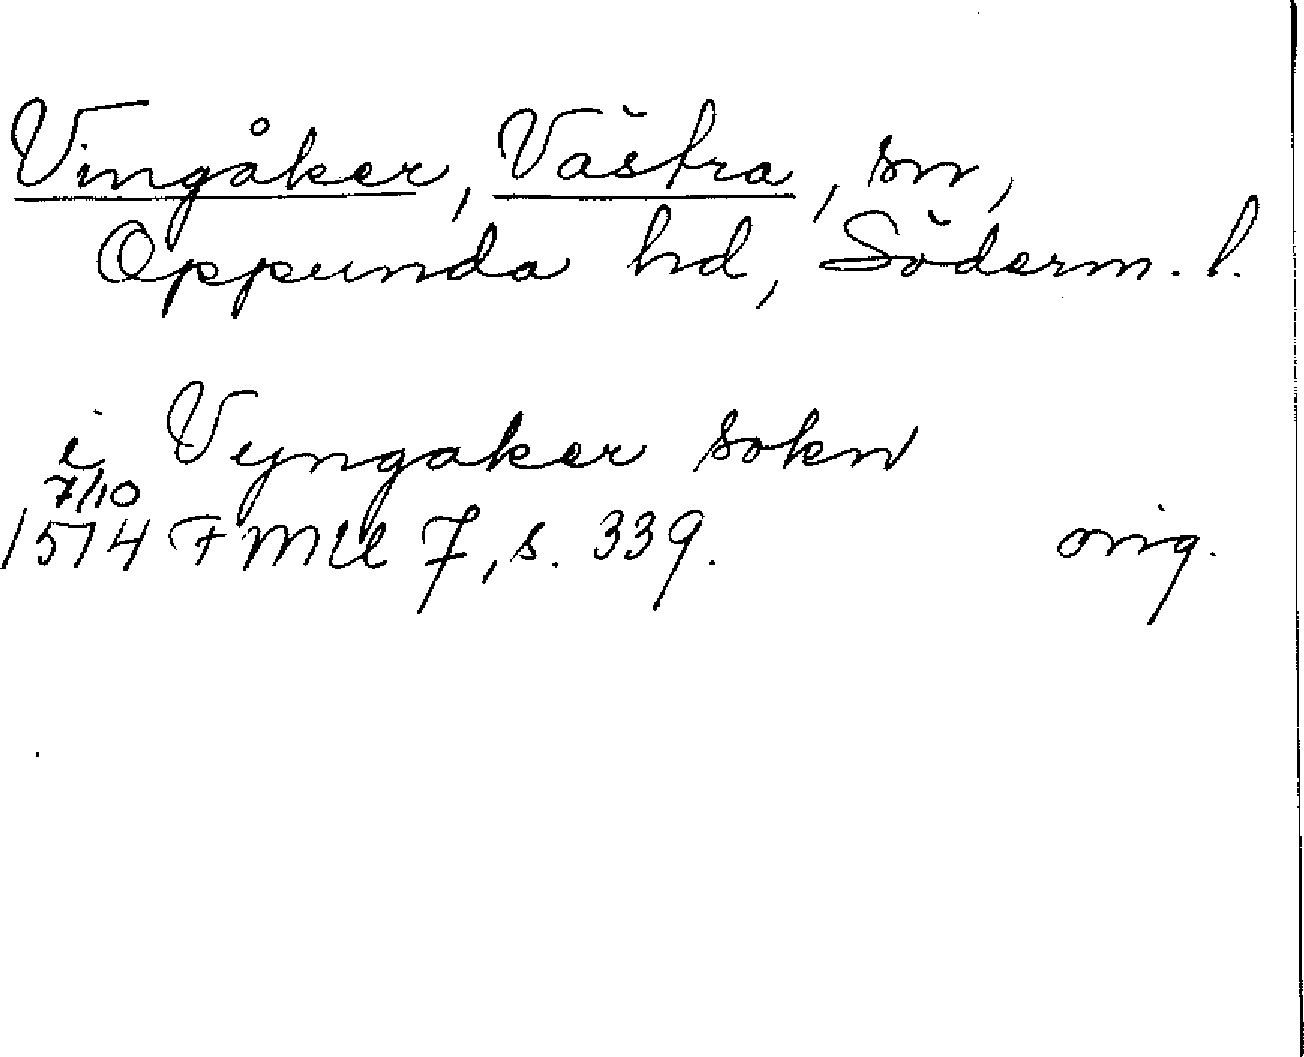 Vingåker, Västra, sn,
Oppunda hd, Söderm. l.
i Vyngaker sokn
7/10
1514 FMU 7, s. 339. orig.